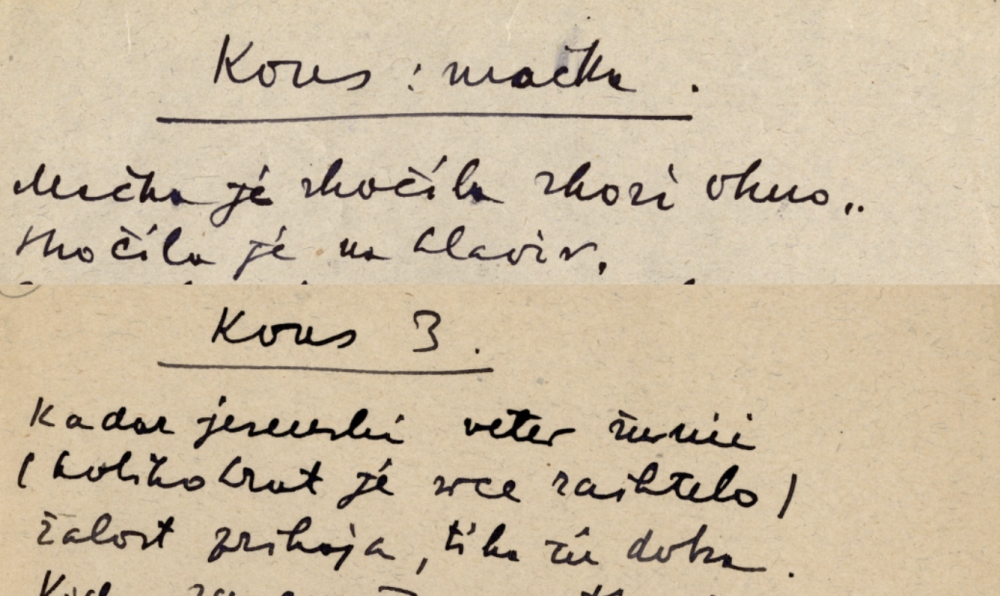 Kons : mačka .
Mačka je skočila skozi okno..
skočila je na klavir.
Kons 3 .
Kadar jesenski veter šumi
(kolikokrat je srce zaihtelo)
žalost prihaja, tiha in